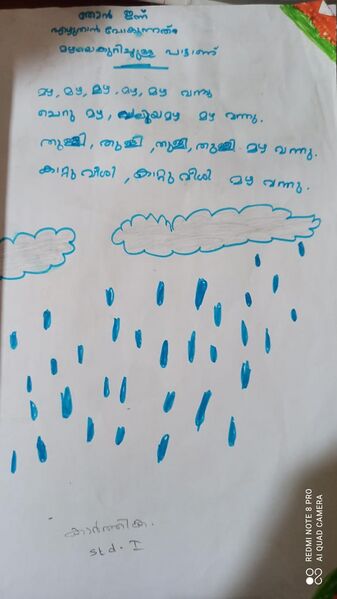 ഞാൻ ഇന്ന്
എഴുതാൻ പോകുന്നത്
മഴയെകുറിച്ചുള്ള പാട്ടാണ്
മഴ, മഴ, മഴ, മഴ, മഴ വന്നു
ചെറു മഴ, വലിയമഴ മഴ വന്നു.
തുള്ളി, തുള്ളി, തുള്ളി, തുള്ളി മഴ വന്നു.
കാറ്റു വീശി, കാറ്റു വീശി മഴ വന്നു.
കാർത്തിക.
std. I
REDMI NOTE 8 PRO
AI QUAD CAMERA